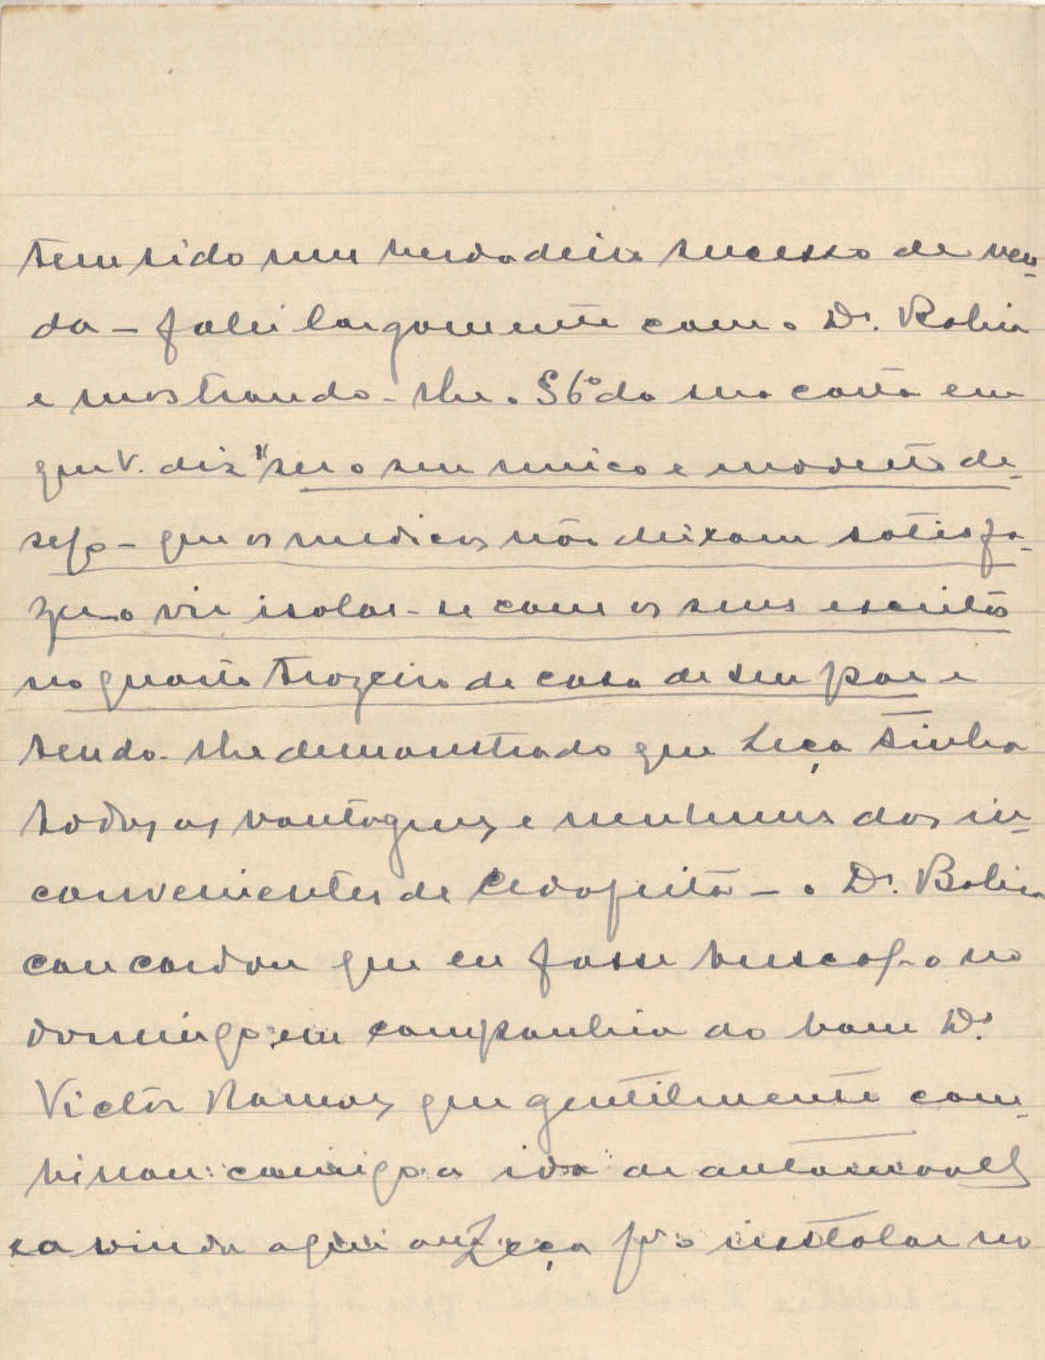 tem sido um verdadeiro sucesso de ven-
da — falei largamente com o Dr. Rolin
e mostrando-lhe o § 6º da sua carta em
que V. diz "ser o seu unico e modesto de-
sejo — que os medicos não deixam satisfa-
zer o vir isolar-se com os seus escritos
no quarto trazeiro de casa de seu pae e
tendo-lhe demonstrado que Leça tinha
todas as vantagens e nenhum dos in-
convenientes de Cedofeita — o Dr. Rolin
concordou que eu fosse buscal-o no
domingo em companhia do bom Dr.
Victor Ramos que gentilmente com-
binou comigo a ida de automovel
a vinda aqui a Leça pª o instalar no